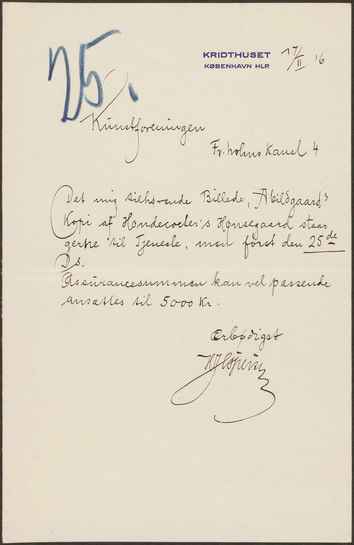 25.
KRIDTHUSET
KØBENHAVN HLP.
17/II 16
Kunstforeningen
Fr. holms Kanal 4
Det mig tilhørende Billede, Abildgaards
Kopi af Hondecoeter's Hønsegaard staar
gerne til Tjeneste, men først den 25de
Ds.
Assurancesummen kan vel passende
ansættes til 5000 Kr.
Ærbødigst